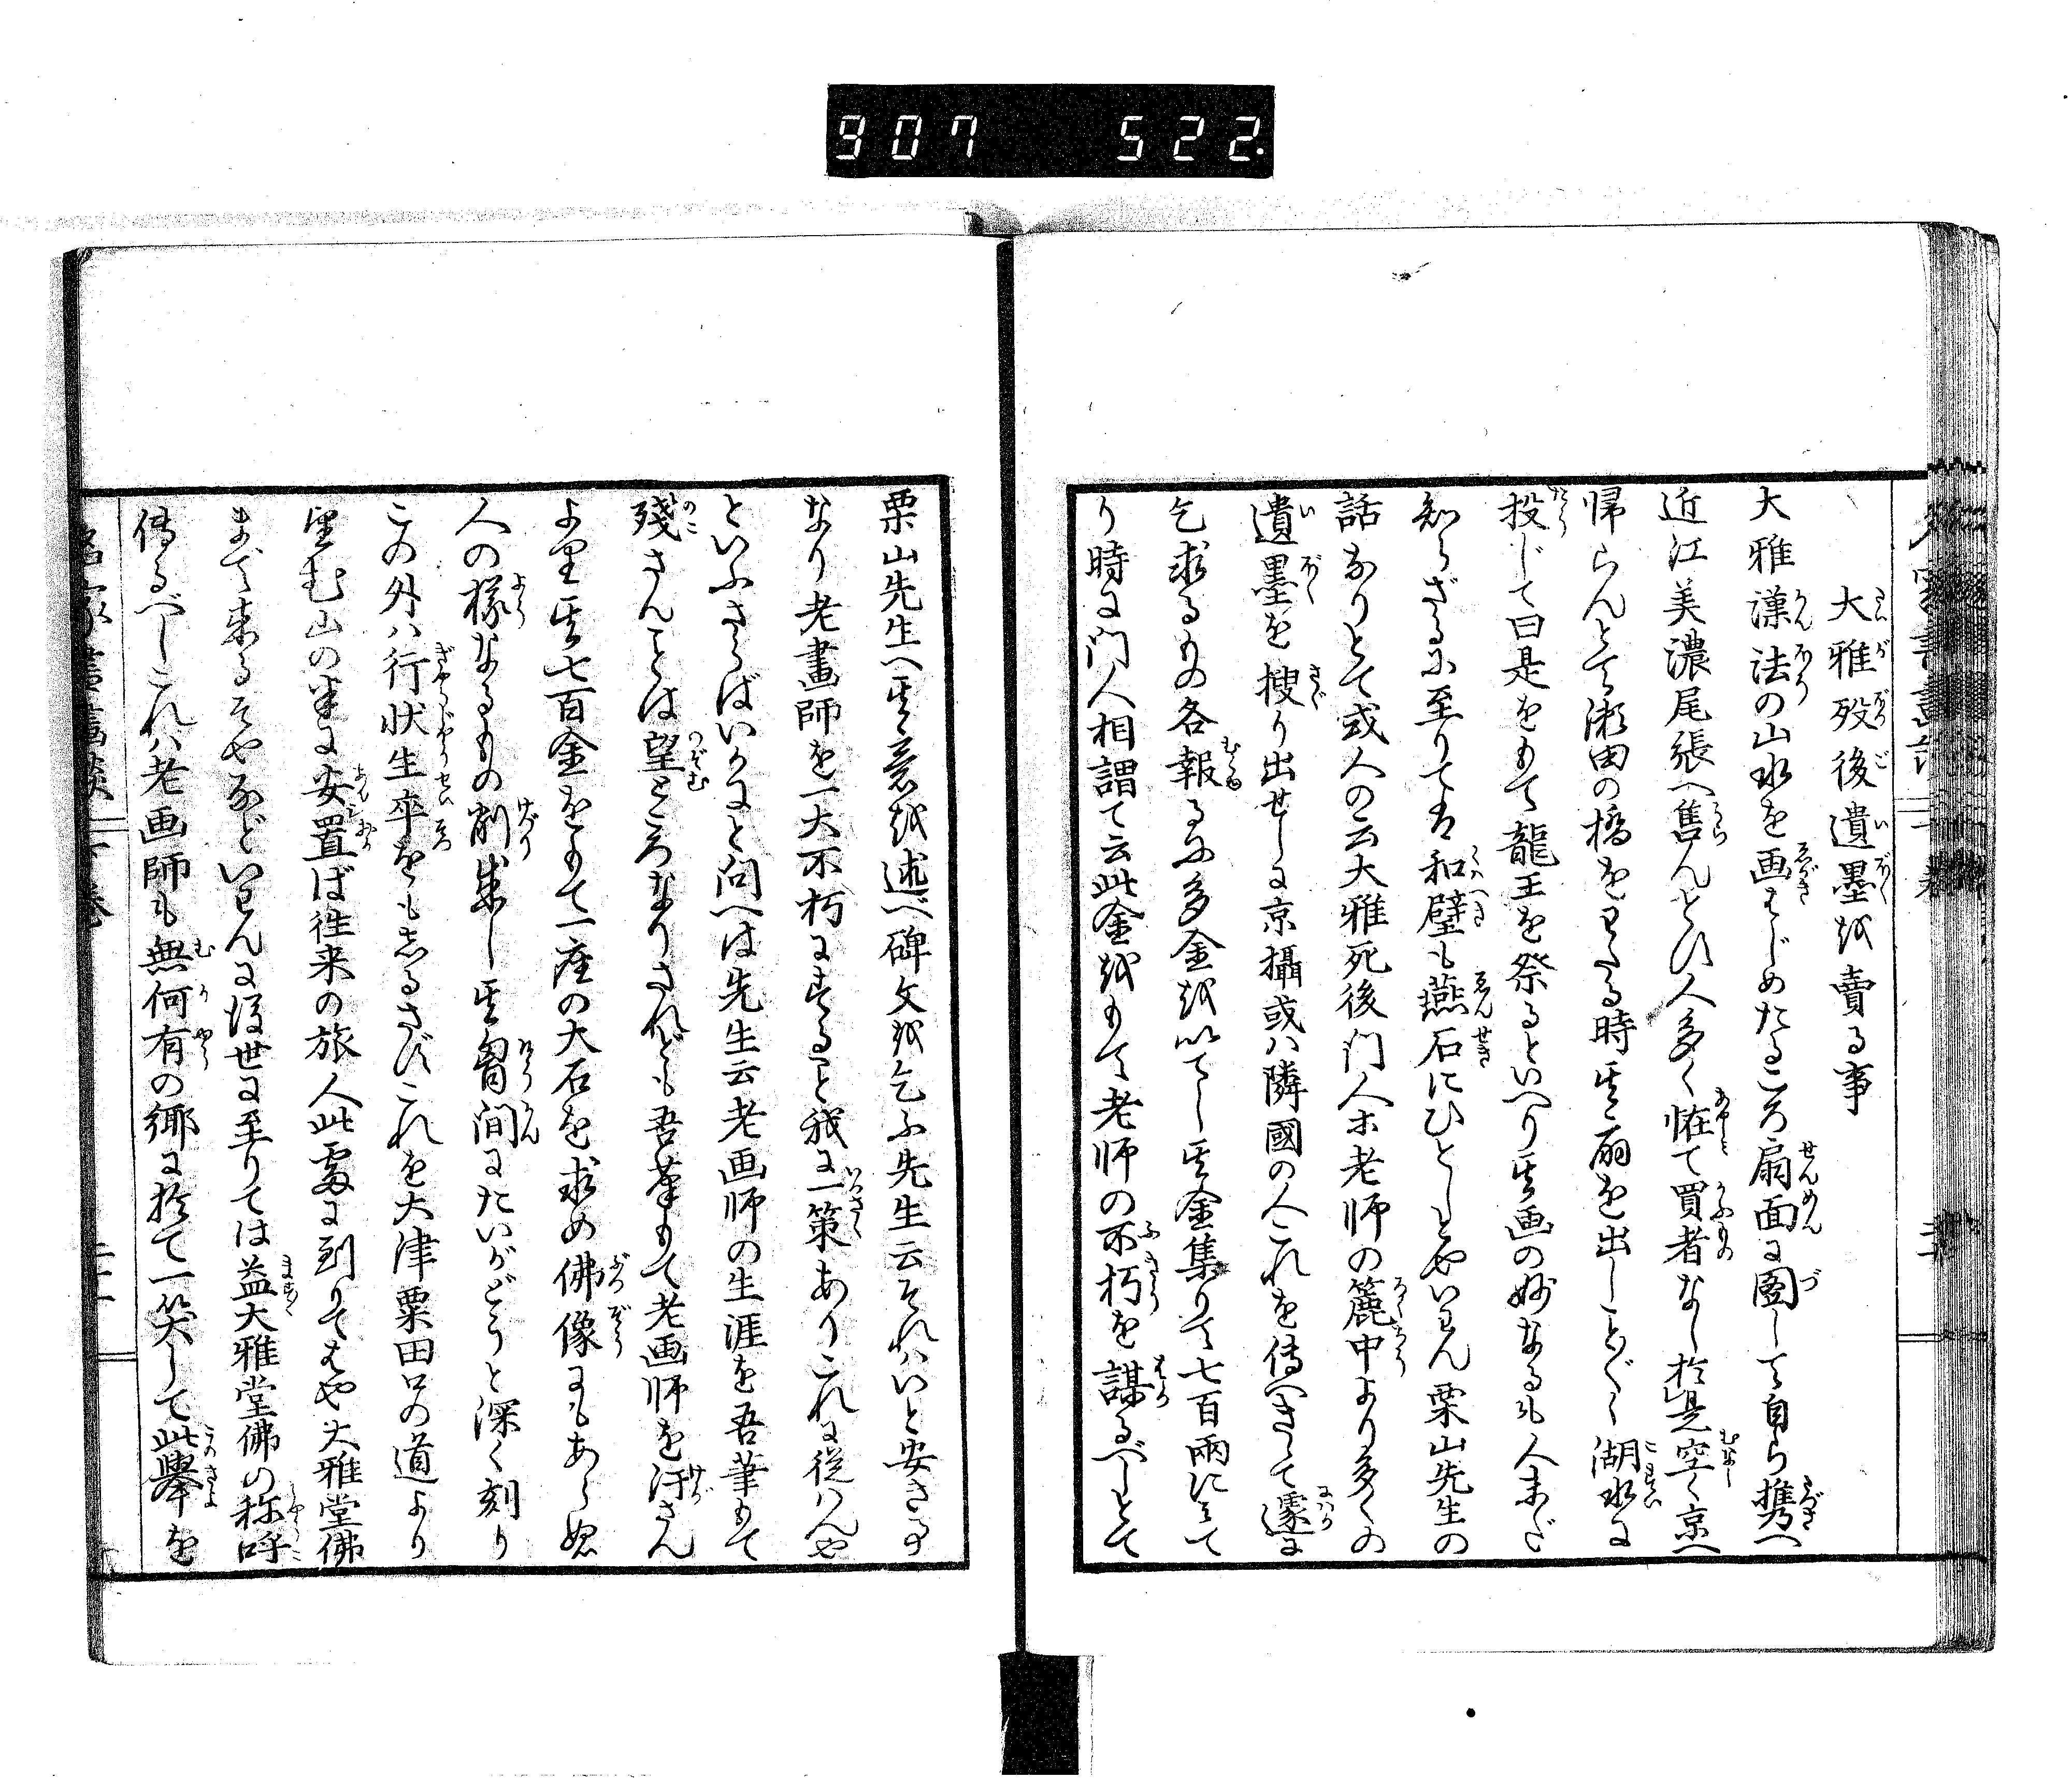 907 522.
大雅歿後遺墨を賣る事
大雅漢法の山水を画きはじめたるころ扇面に圖して自ら携へ
近江美濃尾張へ售んとひ人多く恠て買者なし於是空く京へ
帰らんとて瀬田の橋をわたる時其扇を出しこと〴〵く湖水に
投じて曰是をもて龍王を祭るといへり其画の妙なるも人未だ
知らざるに至りては和璧も燕石にひとしとやいはん栗山先生の
話なりとて或人の云大雅死後門人ホ老师の簏中より多くの
遺墨を搜り出せしに京攝或ハ隣國の人これを傳へきゝて遽に
乞求るもの各報るに多金を以てし其金集りて七百兩にミて
り時に门人相謂て云此金をもて老师の不朽を謀るべしとて
栗山先生へ其意を述べ碑文を乞ふ先生云それハいと安き事
なり老畫師を一大不朽にすること我に一策ありこれに従ハんや
といふさらばいかにと问へは先生云老画师の生涯を吾筆もて
殘さんことは望ところなりされども吾筆もて老画师を汙さん
より其七百金をもて一座の大石を求め佛像にもあらぬ
人の様なるもの削成し其胷间にたいがどうと深く刻り
この外ハ行状生卒をもしるさずこれを大津粟田口の道より
望む山の半に安置ば往来の旅人此處に到りてはや大雅堂佛
まで来るぞやなどいはんに後世に至りては益大雅堂佛の称呼
傳るべしこれハ老画師も無何有の郷に於て一笑して此擧を
名家書畫談 二十一